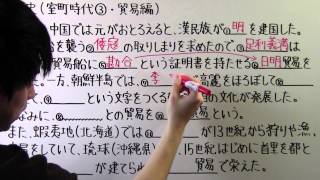 史(室町時代③・貿易編)
中国では、元がおとろえると、漢民族が 明を建国した。
を襲う 倭寇の取りしまりを求めてので、足利義満は
に 勘合という証明書を持たせる 日明貿易
一方、朝鮮半島では、李 高麗をほろぼして
という文字をつくる の文化が発展した。
なみに、 との貿易を 貿易という。
また、蝦夷地(北海道)では が13世紀から狩りや漁
易をしていて、琉球(沖縄県) 、15世紀はじめに首里を都と
が建てられ 貿易で栄えた。